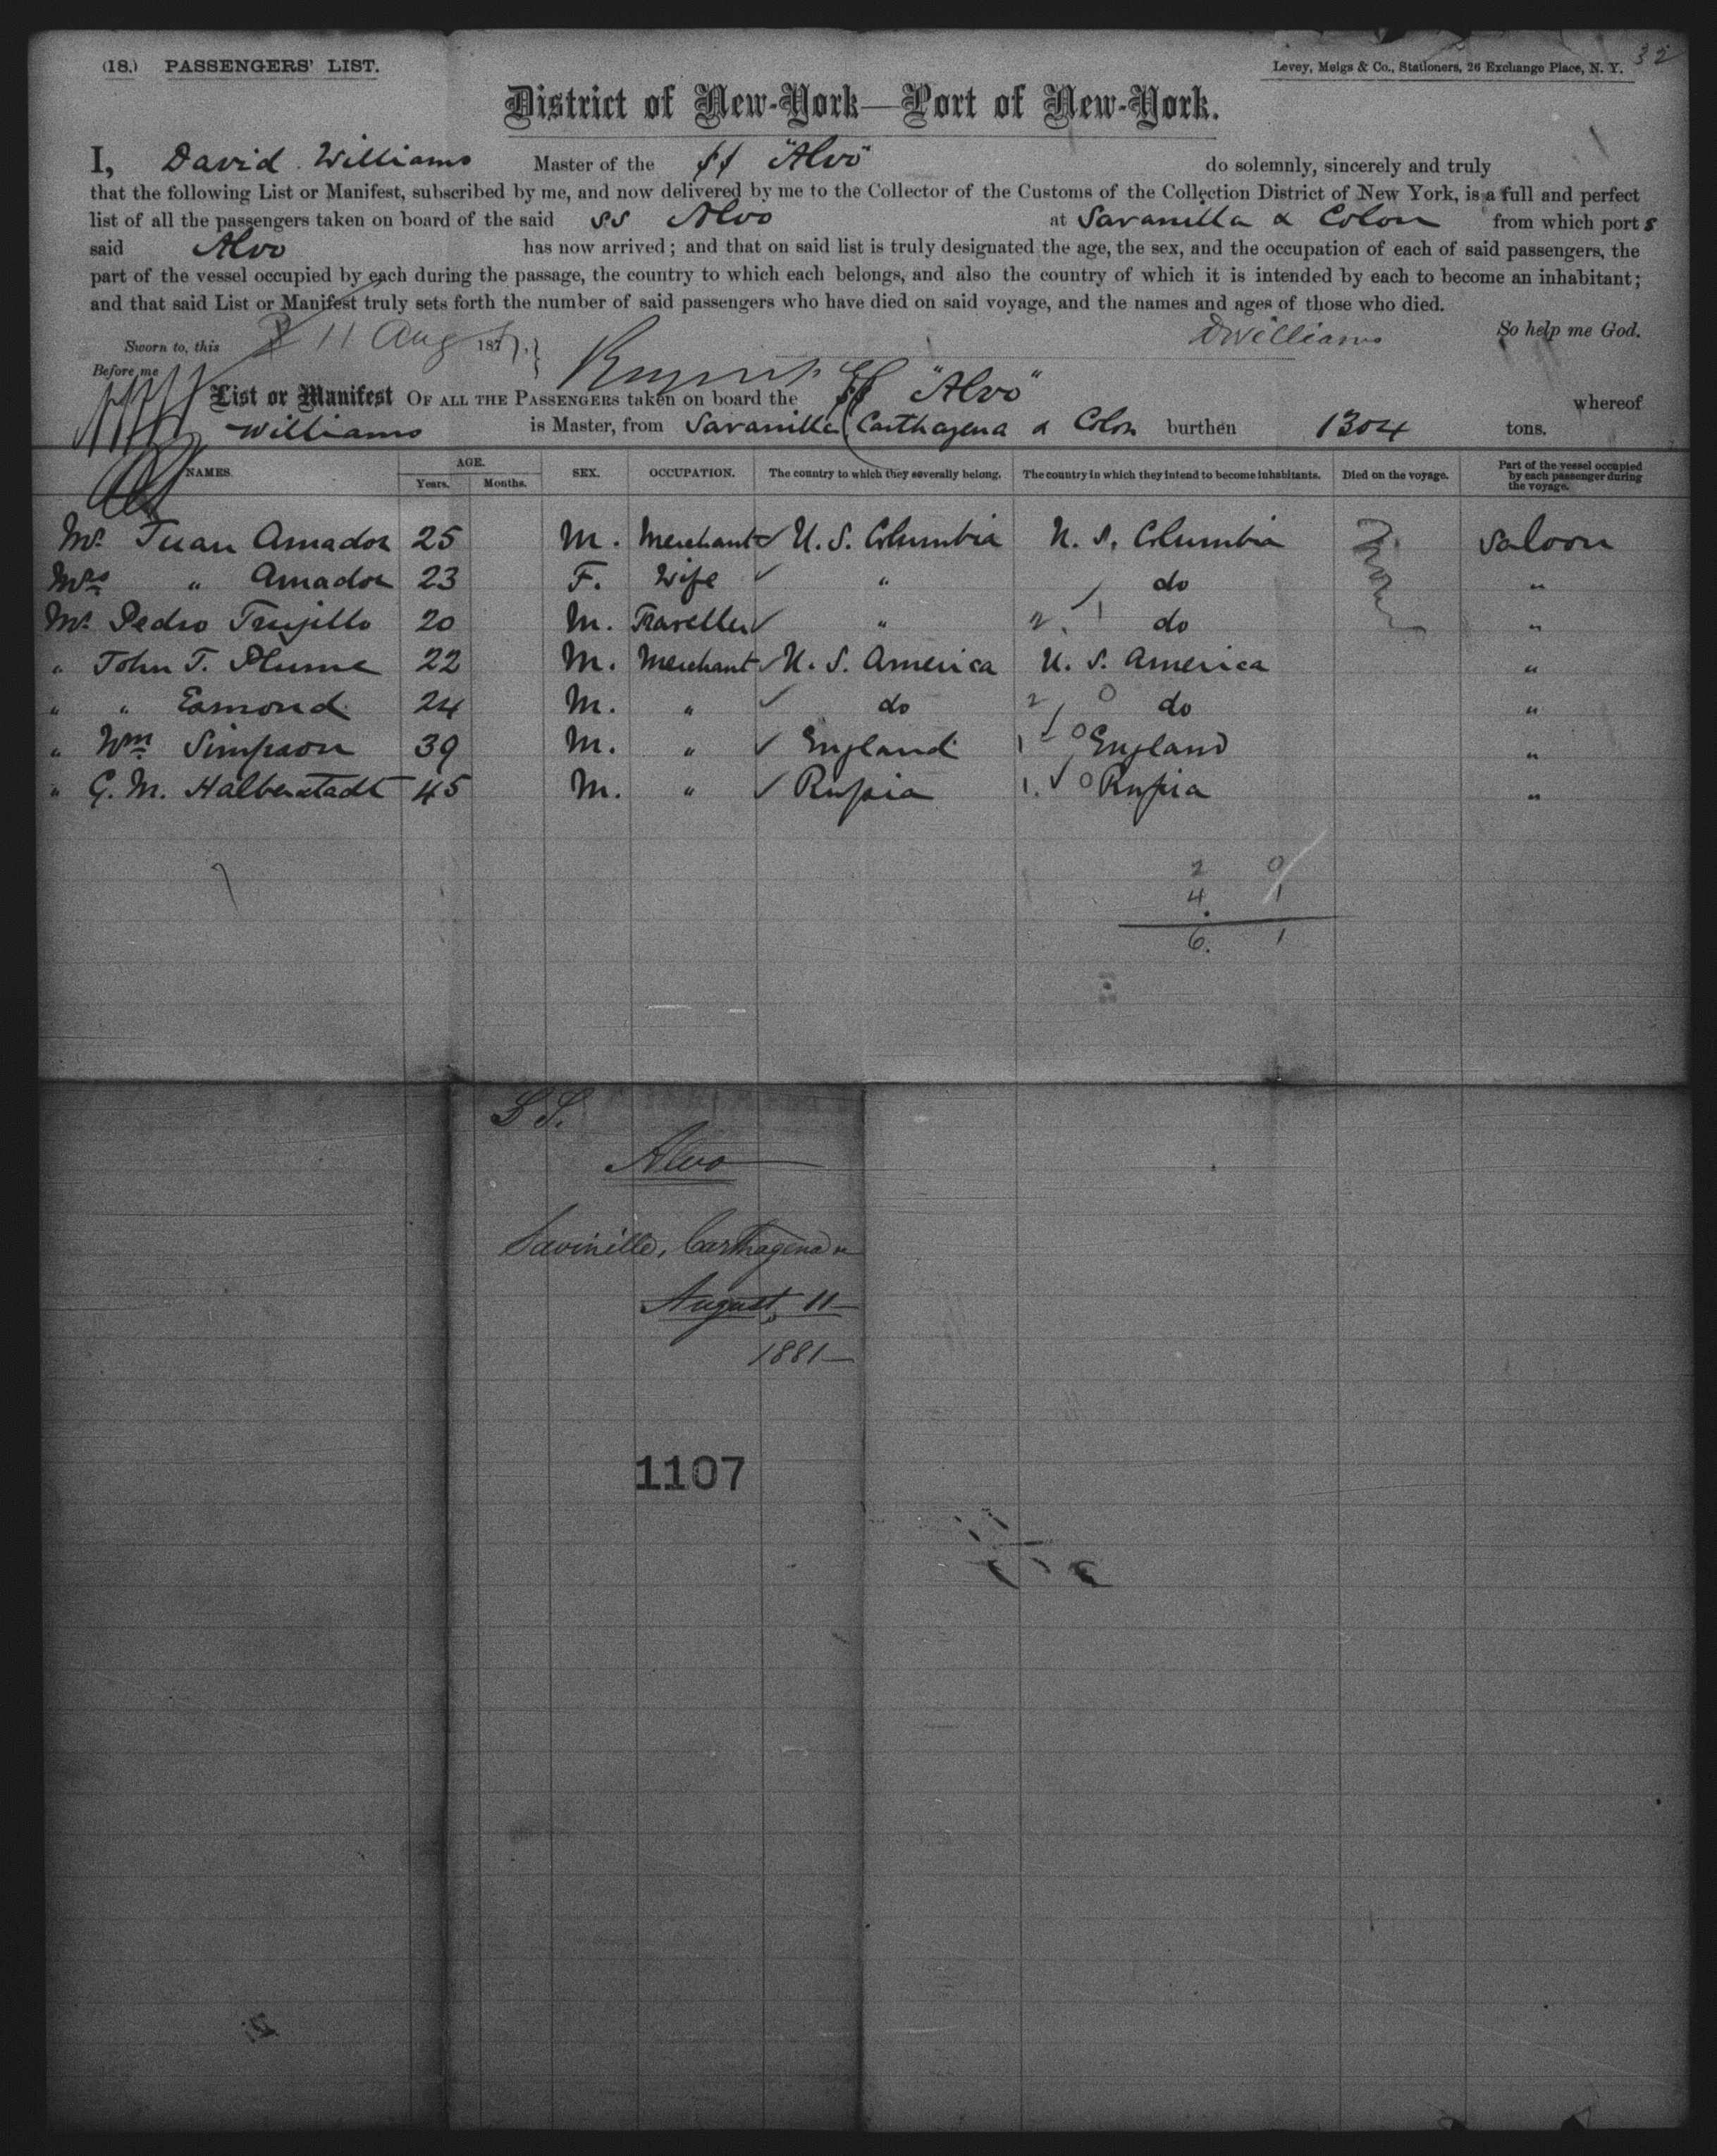 (18.) PASSENGERS' LIST.
Levey, Meigs & Co., Stationers, 26 Exchange Place, N. Y.
32
District of New-York—Port of New-York.
I, David Williams Master of the SS "Alvo" do solemnly, sincerely and truly
that the following List or Manifest, subscribed by me, and now delivered by me to the Collector of the Customs of the Collection District of New York, is a full and perfect
list of all the passengers taken on board of the said SS Alvo at Savanilla & Colon from which port s
said Alvo has now arrived; and that on said list is truly designated the age, the sex, and the occupation of each of said passengers, the
part of the vessel occupied by each during the passage, the country to which each belongs, and also the country of which it is intended by each to become an inhabitant;
and that said List or Manifest truly sets forth the number of said passengers who have died on said voyage, and the names and ages of those who died.
So help me God.
Sworn to, this 11 Aug 187 DWilliams
Before me
List or Manifest OF ALL THE PASSENGERS taken on board the SS "Alvo" whereof
Williams is Master, from Savanilla Carthagena & Colon burthen 1304 tons.
NAMES. AGE. Years. Months. SEX. OCCUPATION. The country to which they severally belong. The country in which they intend to become inhabitants. Died on the voyage. Part of the vessel occupied by each passenger during the voyage.
Mr. Juan Amador 25 M. Merchant U. S. Columbia U. S. Columbia None Saloon
Mrs " Amador 23 F. Wife " do "
Mr. Pedro Trujillo 20 M. Traveller " 2. 1 do "
" John T. Plume 22 M. Merchant U. S. America U. S. America "
" " Esmond 24 M. " do 2 0 do "
" Wm Simpson 39 M. " England 1 0 England "
" G. M. Halberstadt 45 M. " Russia 1. 0 Russia "
7
2 0
4 1
6. 1
S S.
Alvo
Savinille, Carthagena
August 11
1881
1107